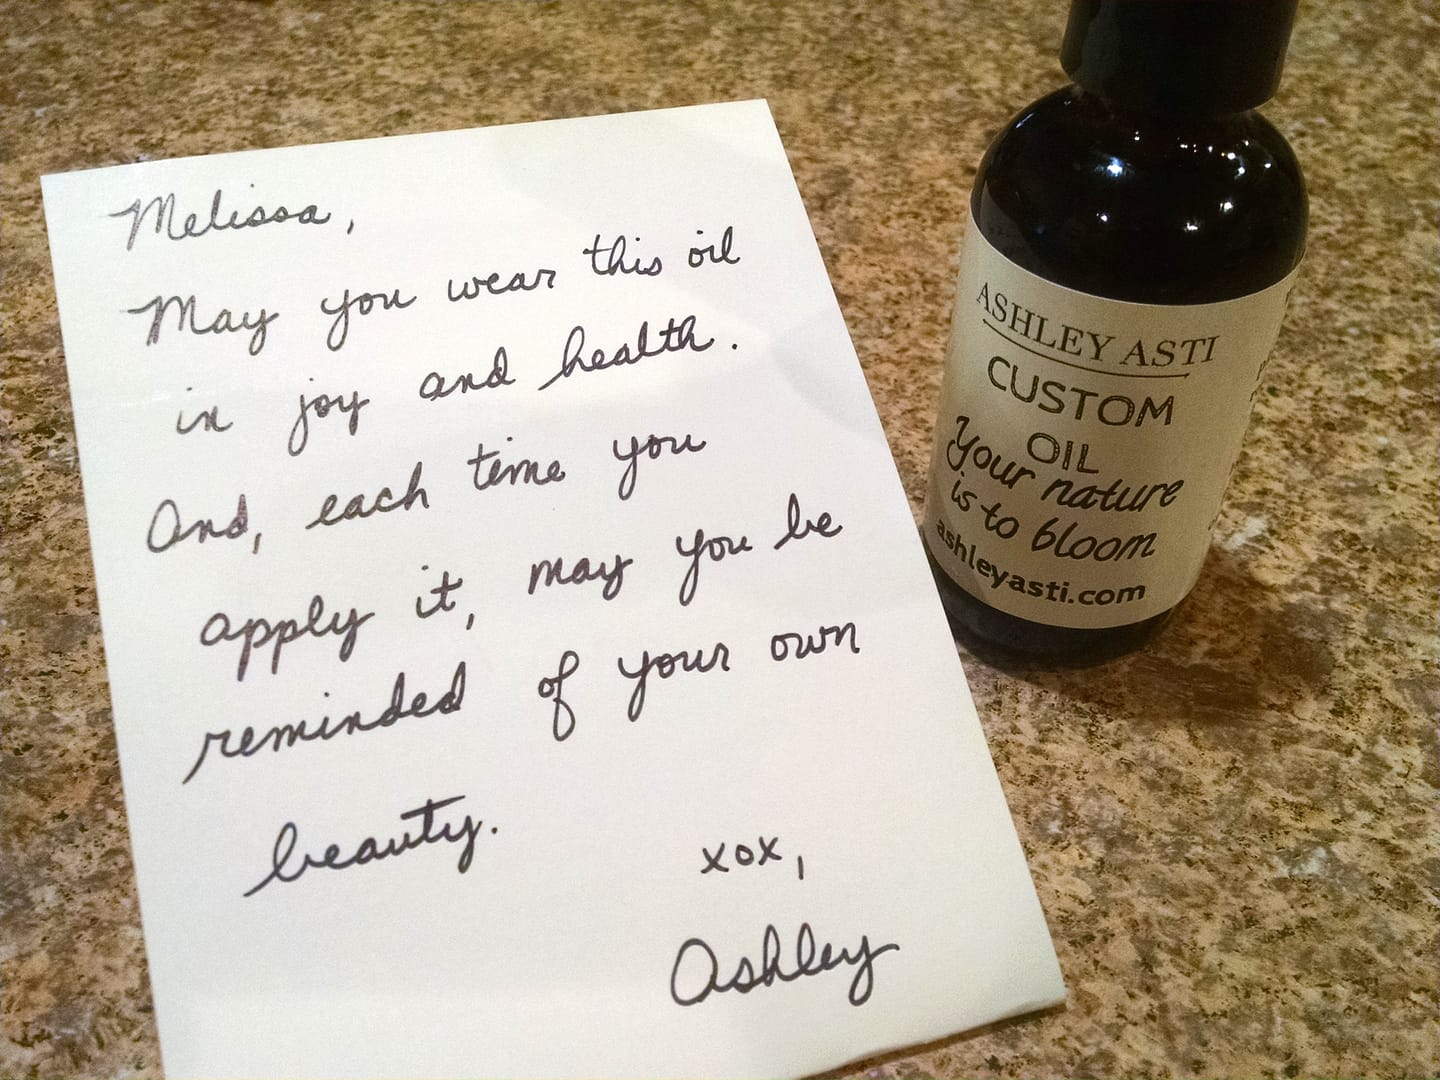 Melissa,
May you wear this oil
in joy and health.
And, each time you
apply it, may you be
reminded of your own
beauty.
xox,
Ashley
ASHLEY ASTI
CUSTOM
OIL
Your nature
is to bloom
ashleyasti.com